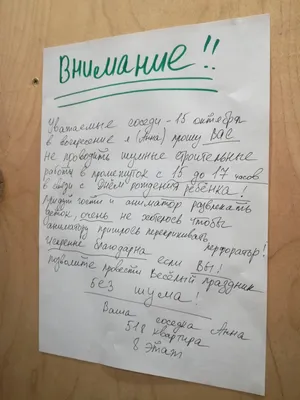 Внимание!!
Уважаемые соседи - 15 октября
в воскресение я (Анна) прошу ВАС
не проводить шумные строительные
работы в промежуток с 15 до 17 часов
в связи с "Днём" рождения ребёнка!
Придут гости и аниматор развлекать
деток, очень не хотелось чтобы
аниматору пришлось перекрикивать
перфоратор!
Искренне благодарна если ВЫ!
позволите провести весёлый праздник
БЕЗ ШУМА!
Ваша соседка Анна
518 квартира
8 этаж